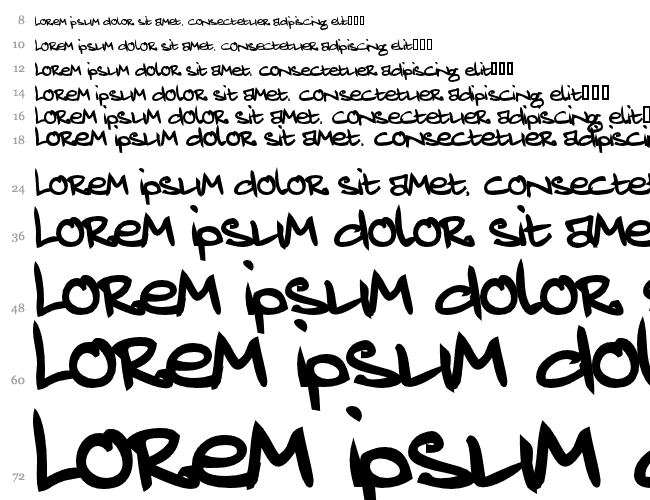 8 Lorem ipsum dolor sit amet, consectetuer adipiscing elit▯▯▯
10 Lorem ipsum dolor sit amet, consectetuer adipiscing elit▯▯▯
12 Lorem ipsum dolor sit amet, consectetuer adipiscing elit▯▯▯
14 Lorem ipsum dolor sit amet, consectetuer adipiscing elit▯▯▯
16 Lorem ipsum dolor sit amet, consectetuer adipiscing elit▯
18 Lorem ipsum dolor sit amet, consectetuer adipisci
24 Lorem ipsum dolor sit amet, consecte
36 Lorem ipsum dolor sit ame
48 Lorem ipsum dolor
60 Lorem ipsum dol
72 Lorem ipsum